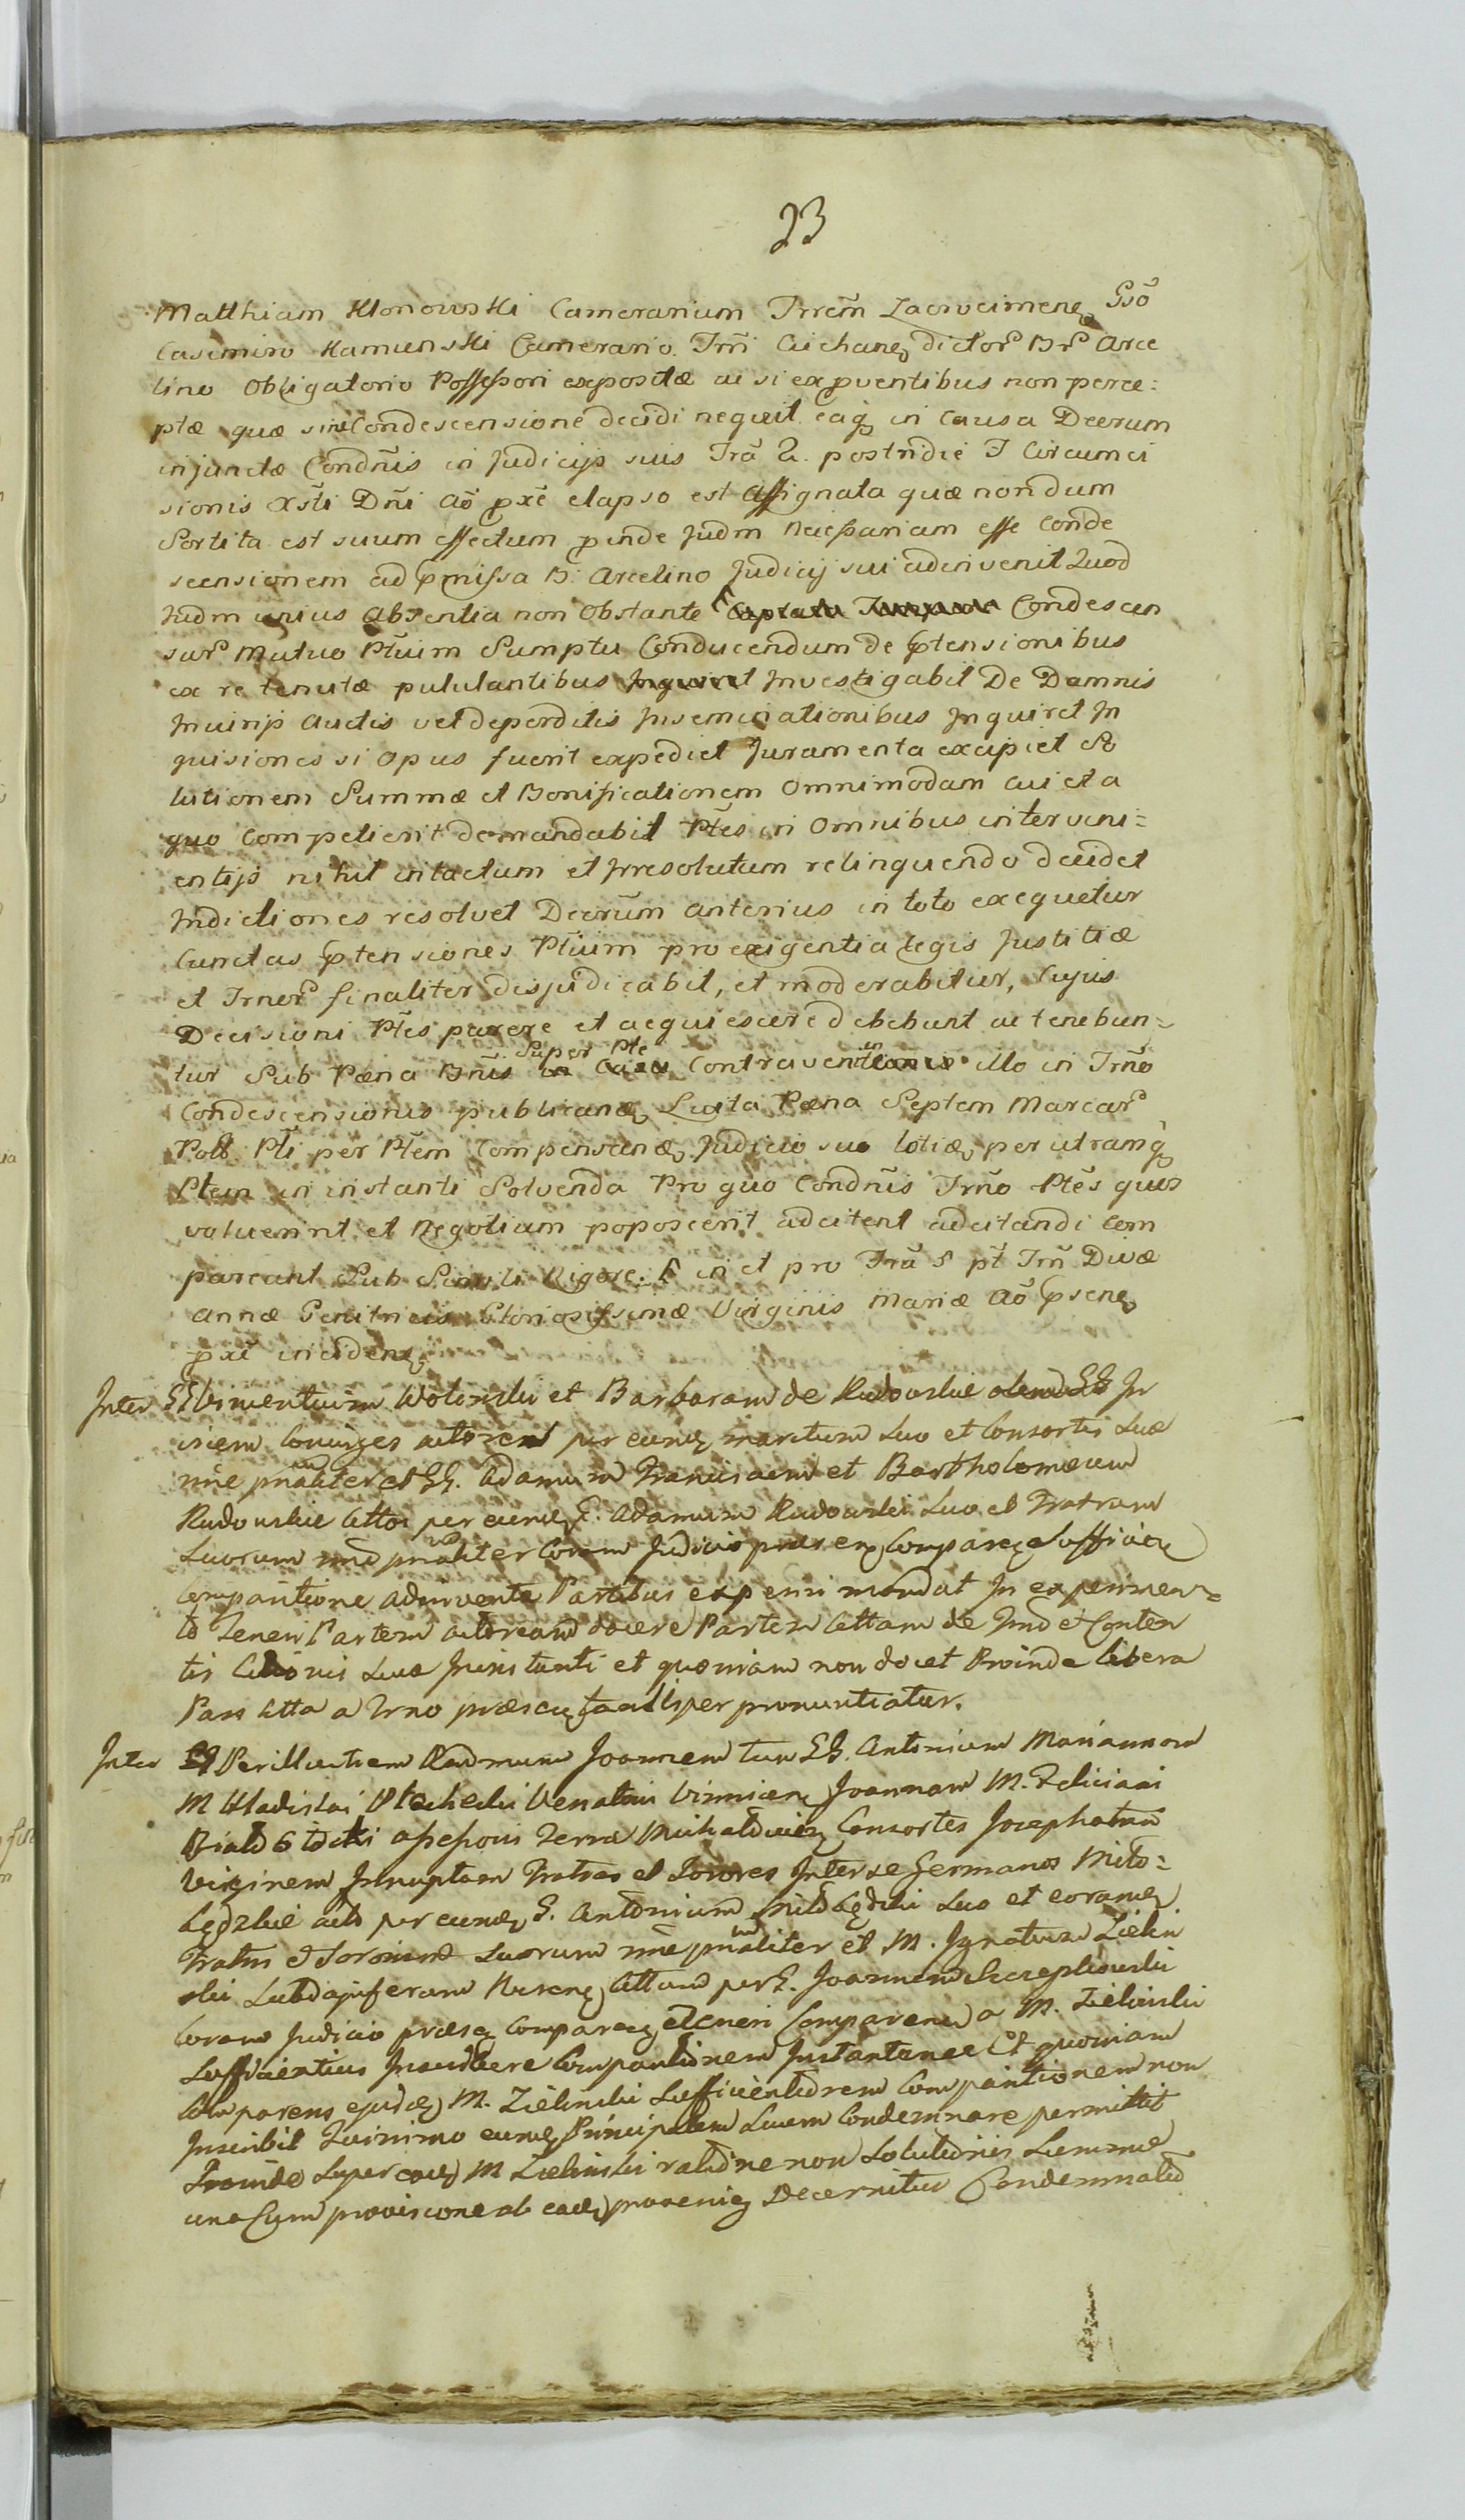 23
Matthiam Klonowski Camerarium Trrem̃ Zacrocimen̄ Gsõ
Casimiro Kamienski Camerario Trrñi Ciechan̄ dictor̃ Br̃ Arce
lino Obligatorio Possessori expositæ ac si ex proventibus non perce:
ptæ quæ sine Condescensione decidi nequit eaq̨ in Causa Decrum
injunctæ Condñis in Judicijs suis Frã 2. postridie F Circumci
sionis Xsti Dñi Aõ pxẽ elapso est Assignata quæ nondum
Sortita est suum effectum pinde Judm Necessariam esse Conde
scensionem ad pmissa B: Arcelino Judicij sui adinvenit Quod
Judm unius Absentia non Obstante Condescen
sur̃ Mutuo Ptium Sumptu Conducendum de ptensionibus
ex re tenutæ pululantibus Investigabit De Damnis
Injurijs Auctis vel deperditis Inseminationibus Inquiret In
quisiones si Opus fuerit expediet Juramenta excipiet So
lutionem Summæ et Bonificationem Omnimodam cui et a
quo Competierit demandabit Ptes in Omnibus interveni=
entijs nihil intactum et Irresolutum relinquendo decidet
Indictiones resolvet Decrum anterius in toto exequetur
Cunctas ptensiones Ptium pro exigentia Legis Justitiæ
et Trner̃ finaliter disjudicabit, et moderabitur, Cujus
Decisioni Ptes parere et acquiescere debebunt ac tenebun=
Super Pte in
tur Sub Pæna Bñis Contraven illo in Trño
Condescensionis publican̄ Luita Pæna Septem Marcar̃
Poll: Pti per Ptem Compensan̄ Judicio suo per utramq̨
Ptem in instanti Solvenda Pro quo Condñis Trño Ptes quos
voluerint et Negotium poposcerit adcitent adcitandi Com
pareant Sub Simili Rigore. F in et pro Frã S pt Trñ Divæ
Annæ Genitricis Gloriosissimæ Virginis Mariæ Aõ psen̄
pxẽ inciden̄
Inter GG Vincentium Wolinski et Barbaram de Rudowskie In
vicem Conjuges actores per eund̄ maritum Suo et Consortis Suæ
nñe pnaliter et GG. Adamum Franciscum et Bartholomæum
Rudowskie Cittos per eund̄ G. Adamum Rudowski Suo et Fratrum
Suorum nñe pnaliter Coram Judicio præsen̄ Comparen̄ Sufficien̄
Comparitione adinventa Partibus experiri mandat In experimen=
to Teneri Partem actoream docere Partem Cittam de Trno et Conten
tis Citationis Suæ In instanti et quoniam non docet Proinde libera
Pars Citta a Trno præsen̄ pronuntiatur.
Inter Perillustrem Rndmum Joannem tum GG. Antonium Mariannam
M Uladislai Venatoris Joannam M. Feliciani
Assessoris Terræ Michaloviens̄ Consortes Josephatam
Virginem Innuptam Fratres et Sorores Inter se Germanos Mito=
będzkie acto per eund̄ G. Antonium Suo et eorund̄
Fratris et Sororum Suorum nñe pnaliter et M. Ignatium Zielin
ski Subdapiferum Cittum per G. Joannem
Coram Judicio præsen̄ Comparen̄ et teneri Comparen̄ a M. Zielinski
Sufficientius Inscribere Comparitionem Instantanee Et quoniam
Comparens ejusd̄ M. Zielinski Sufficientiorem Comparitionem non
Inscribit Quinimo eund̄ Principalem Suum Condemnare permittit
Proinde Super eod̄ M Zielinski ratione non Solutionis Summæ
una Cum provisione ab ead̄ Decernitur Condemnatio